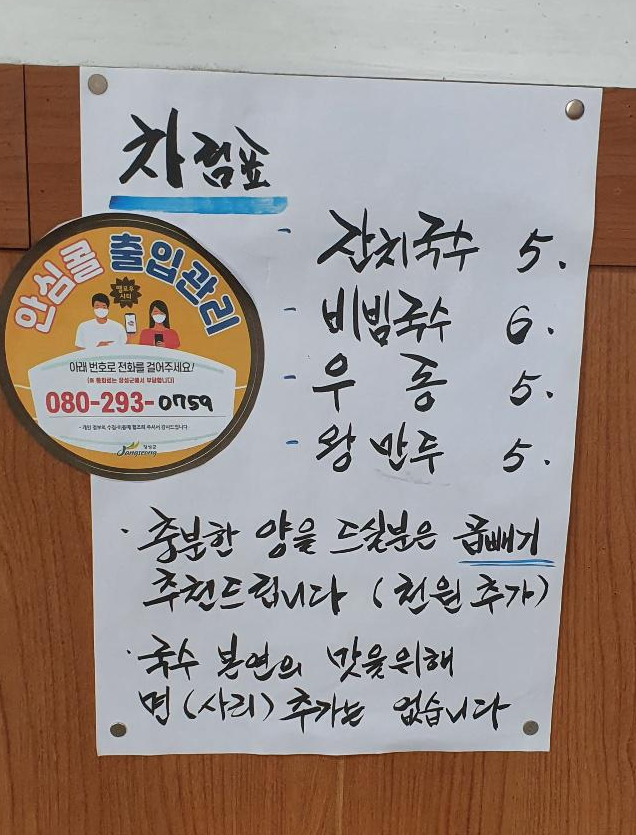 차림표
- 잔치국수 5.
- 비빔국수 6.
- 우 동 5.
- 왕만두 5.
· 충분한 양을 드실분은 곱빼기
추천드립니다 (천원 추가)
· 국수 본연의 맛을위해
면(사리) 추가는 없습니다
안심콜 출입관리
아래 번호로 전화를 걸어주세요!
(이 통화료는 장성군에서 부담합니다)
080-293-0759
장성군
Jangseong